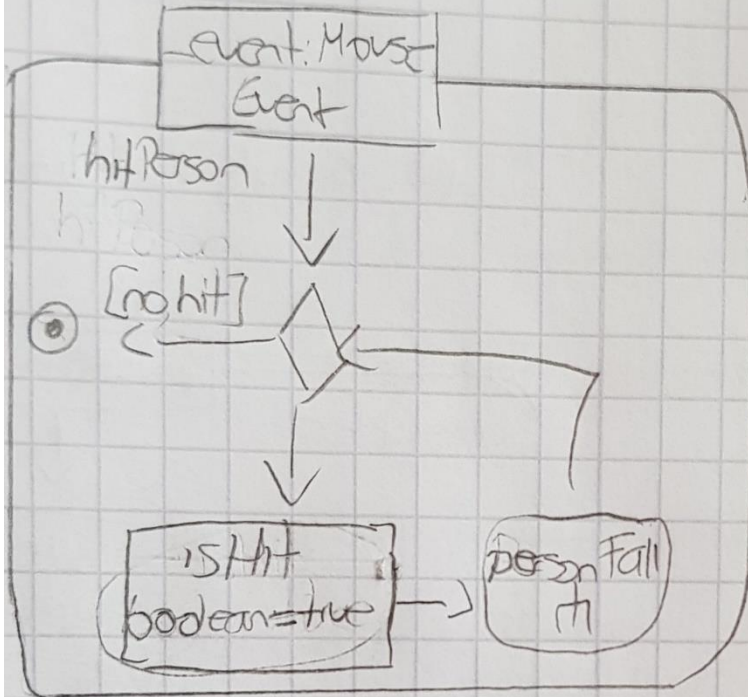 event: Mouse
Event
hitPerson
hitPerson
[no hit]
isHit
boolean=true
personFall